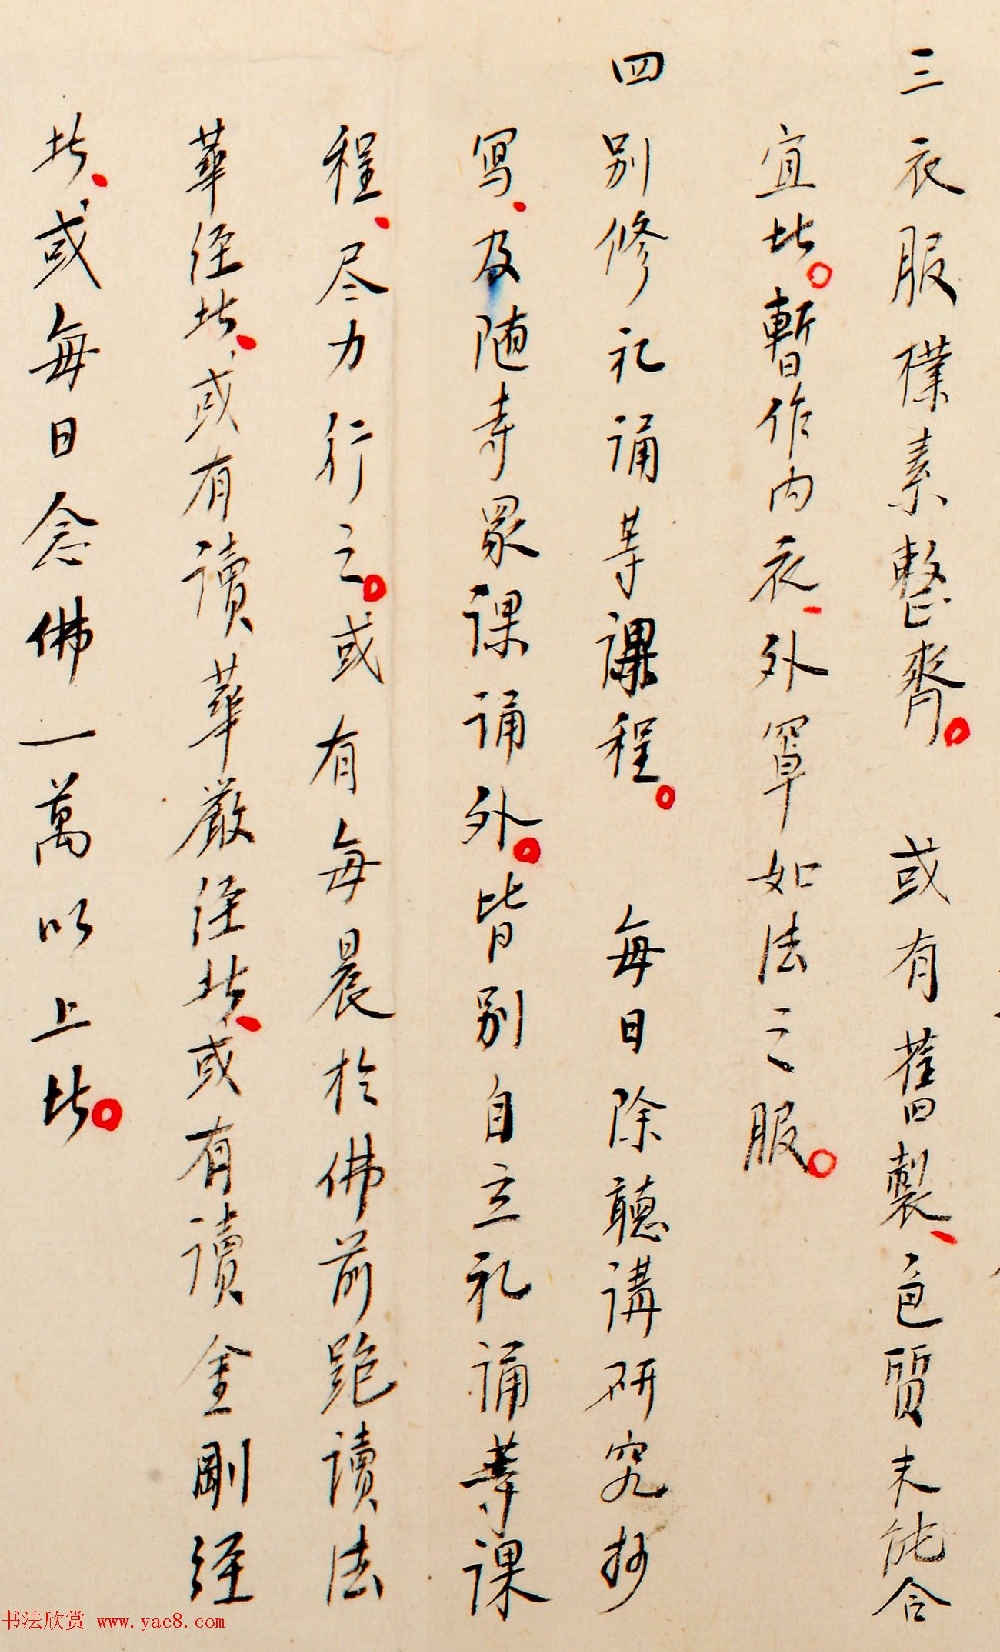 三 衣服僕素整齊。 或有舊製、色質未能合
宜者。暫作內衣、外罩如法之服。
四 別修礼誦等課程。 每日除聽講研究抄
寫、及随寺眾課誦外。皆別自立礼誦等課
程、尽力行之。或有每晨於佛前跪讀法
華經者、或有讀華嚴經者、或有讀金剛經
者、或每日念佛一萬以上者。
书法欣赏 www.yac8.com